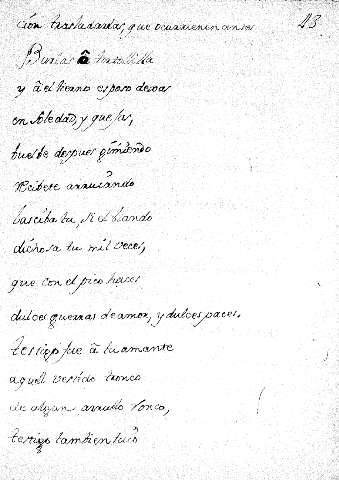 cion trasladarlas, que ocurrieren antes 43
Burlas â tortolilla
y â el tierno esposo dexas
en Soledad, y quejas,
buelbe despues gimiendo
recibete arrullando
lasciba tu, si el blando
dichosa tu mil veces,
que con el pico haces
dulces guerras de amor, y dulces paces.
testigo fue â tu amante
aquel vestido tronco
de algun arrullo ronco,
testigo tambien tuio